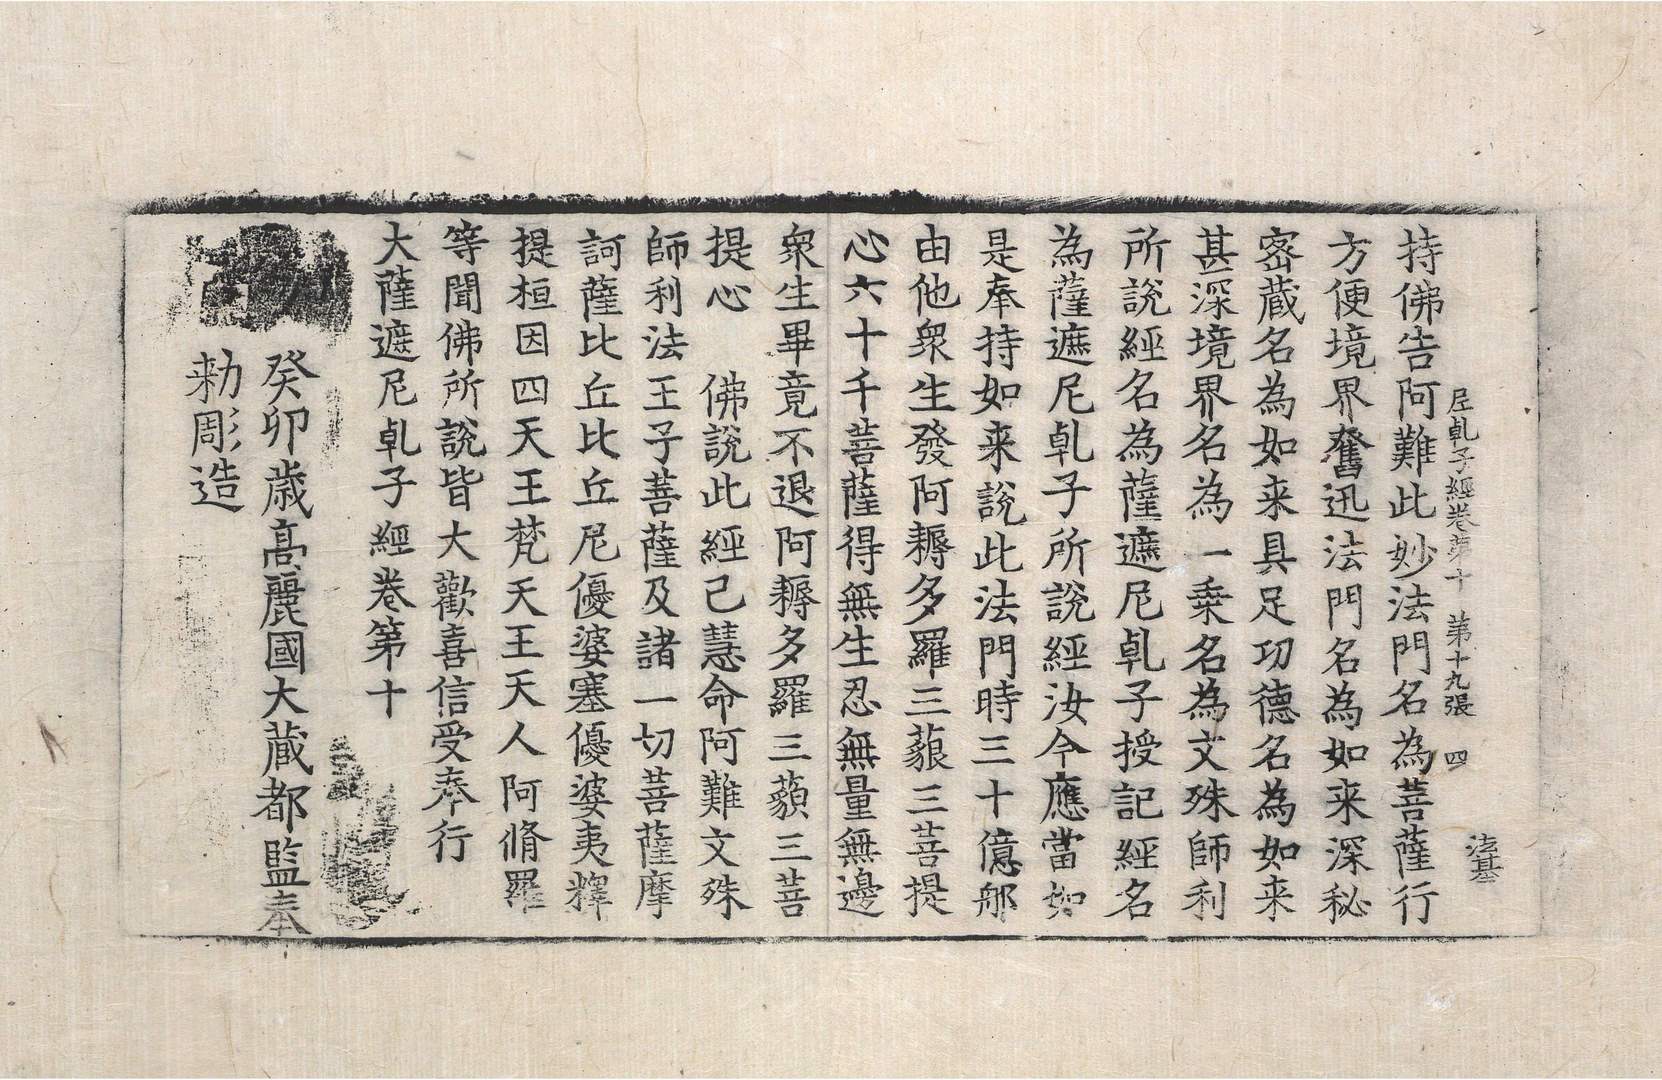 尼乹子經卷第十　第十九張　四
法基
持佛告阿難此妙法門名為菩薩行
方便境界奮迅法門名為如来深秘
密蔵名為如来具足功德名為如来
甚深境界名為一乗名為文殊師利
所說經名為薩遮尼乹子授記經名
為薩遮尼乹子所說經汝今應當如
是奉持如来說此法門時三十億郍
由他衆生發阿耨多羅三藐三菩提
心六十千菩薩得無生忍無量無邊
衆生畢竟不退阿耨多羅三藐三菩
提心　佛說此經已慧命阿難文殊
師利法王子菩薩及諸一切菩薩摩
訶薩比丘比丘尼優婆塞優婆夷釋
提桓因四天王梵天王天人阿脩羅
等聞佛所說皆大歡喜信受奉行
大薩遮尼乹子經卷第十
癸卯歲高麗國大蔵都監奉
勑彫造